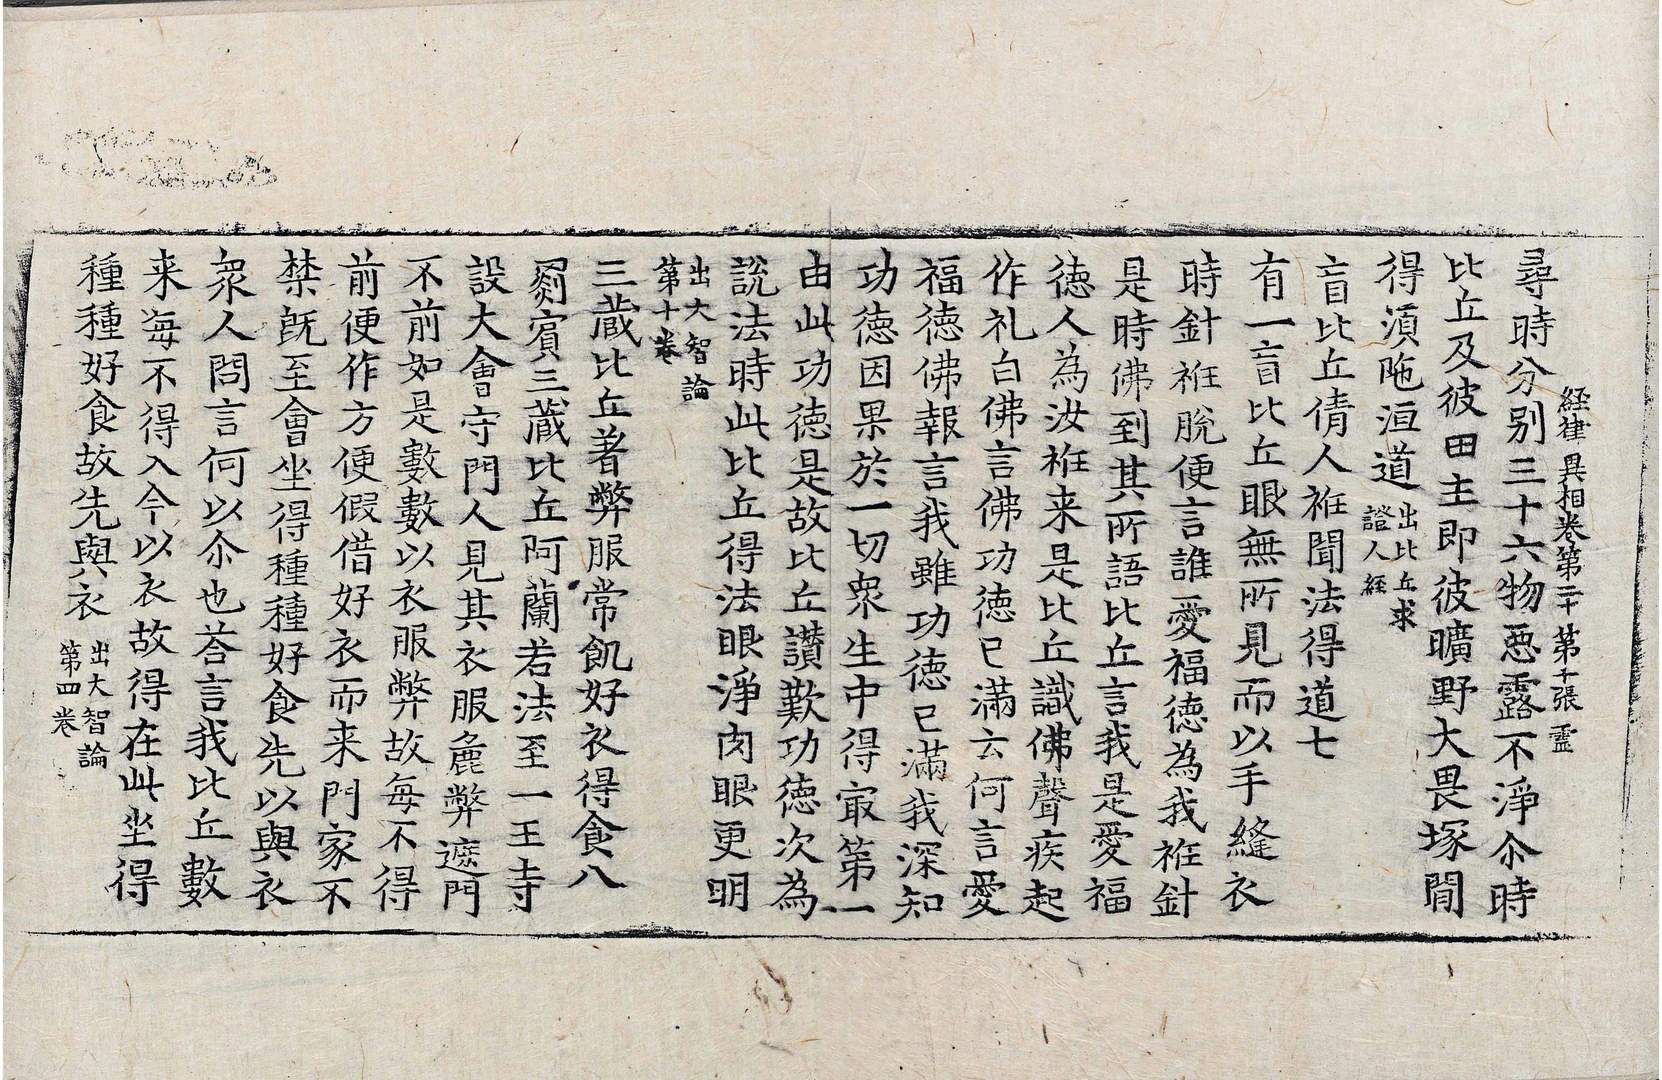 経律異相卷第二十 第十張 靈
尋時分别三十六物惡露不淨尒時
比丘及彼田主即彼曠野大畏塚間
得湏陁洹道 出比丘求證人経
盲比丘倩人袵聞法得道七
有一盲比丘眼無所見而以手縫衣
時針袵脫便言誰愛福徳為我袵針
是時佛到其所語比丘言我是愛福
徳人為汝袵来是比丘識佛聲疾起
作礼白佛言佛功徳已滿云何言愛
福徳佛報言我雖功徳已滿我深知
功徳因果於一切衆生中得㝡第一
由此功徳是故比丘讃歎功徳次為
說法時此比丘得法眼淨肉眼更明
出大智論
第十卷
三蔵比丘著弊服常飢好衣得食八
罽賓三蔵比丘阿蘭若法至一王寺
設大會守門人見其衣服麁弊遮門
不前如是數數以衣服弊故每不得
前便作方便假借好衣而来門家不
禁旣至會坐得種種好食先以與衣
衆人問言何以尒也荅言我比丘數
来每不得入今以衣故得在此坐得
種種好食故先與衣 出大智論第四卷